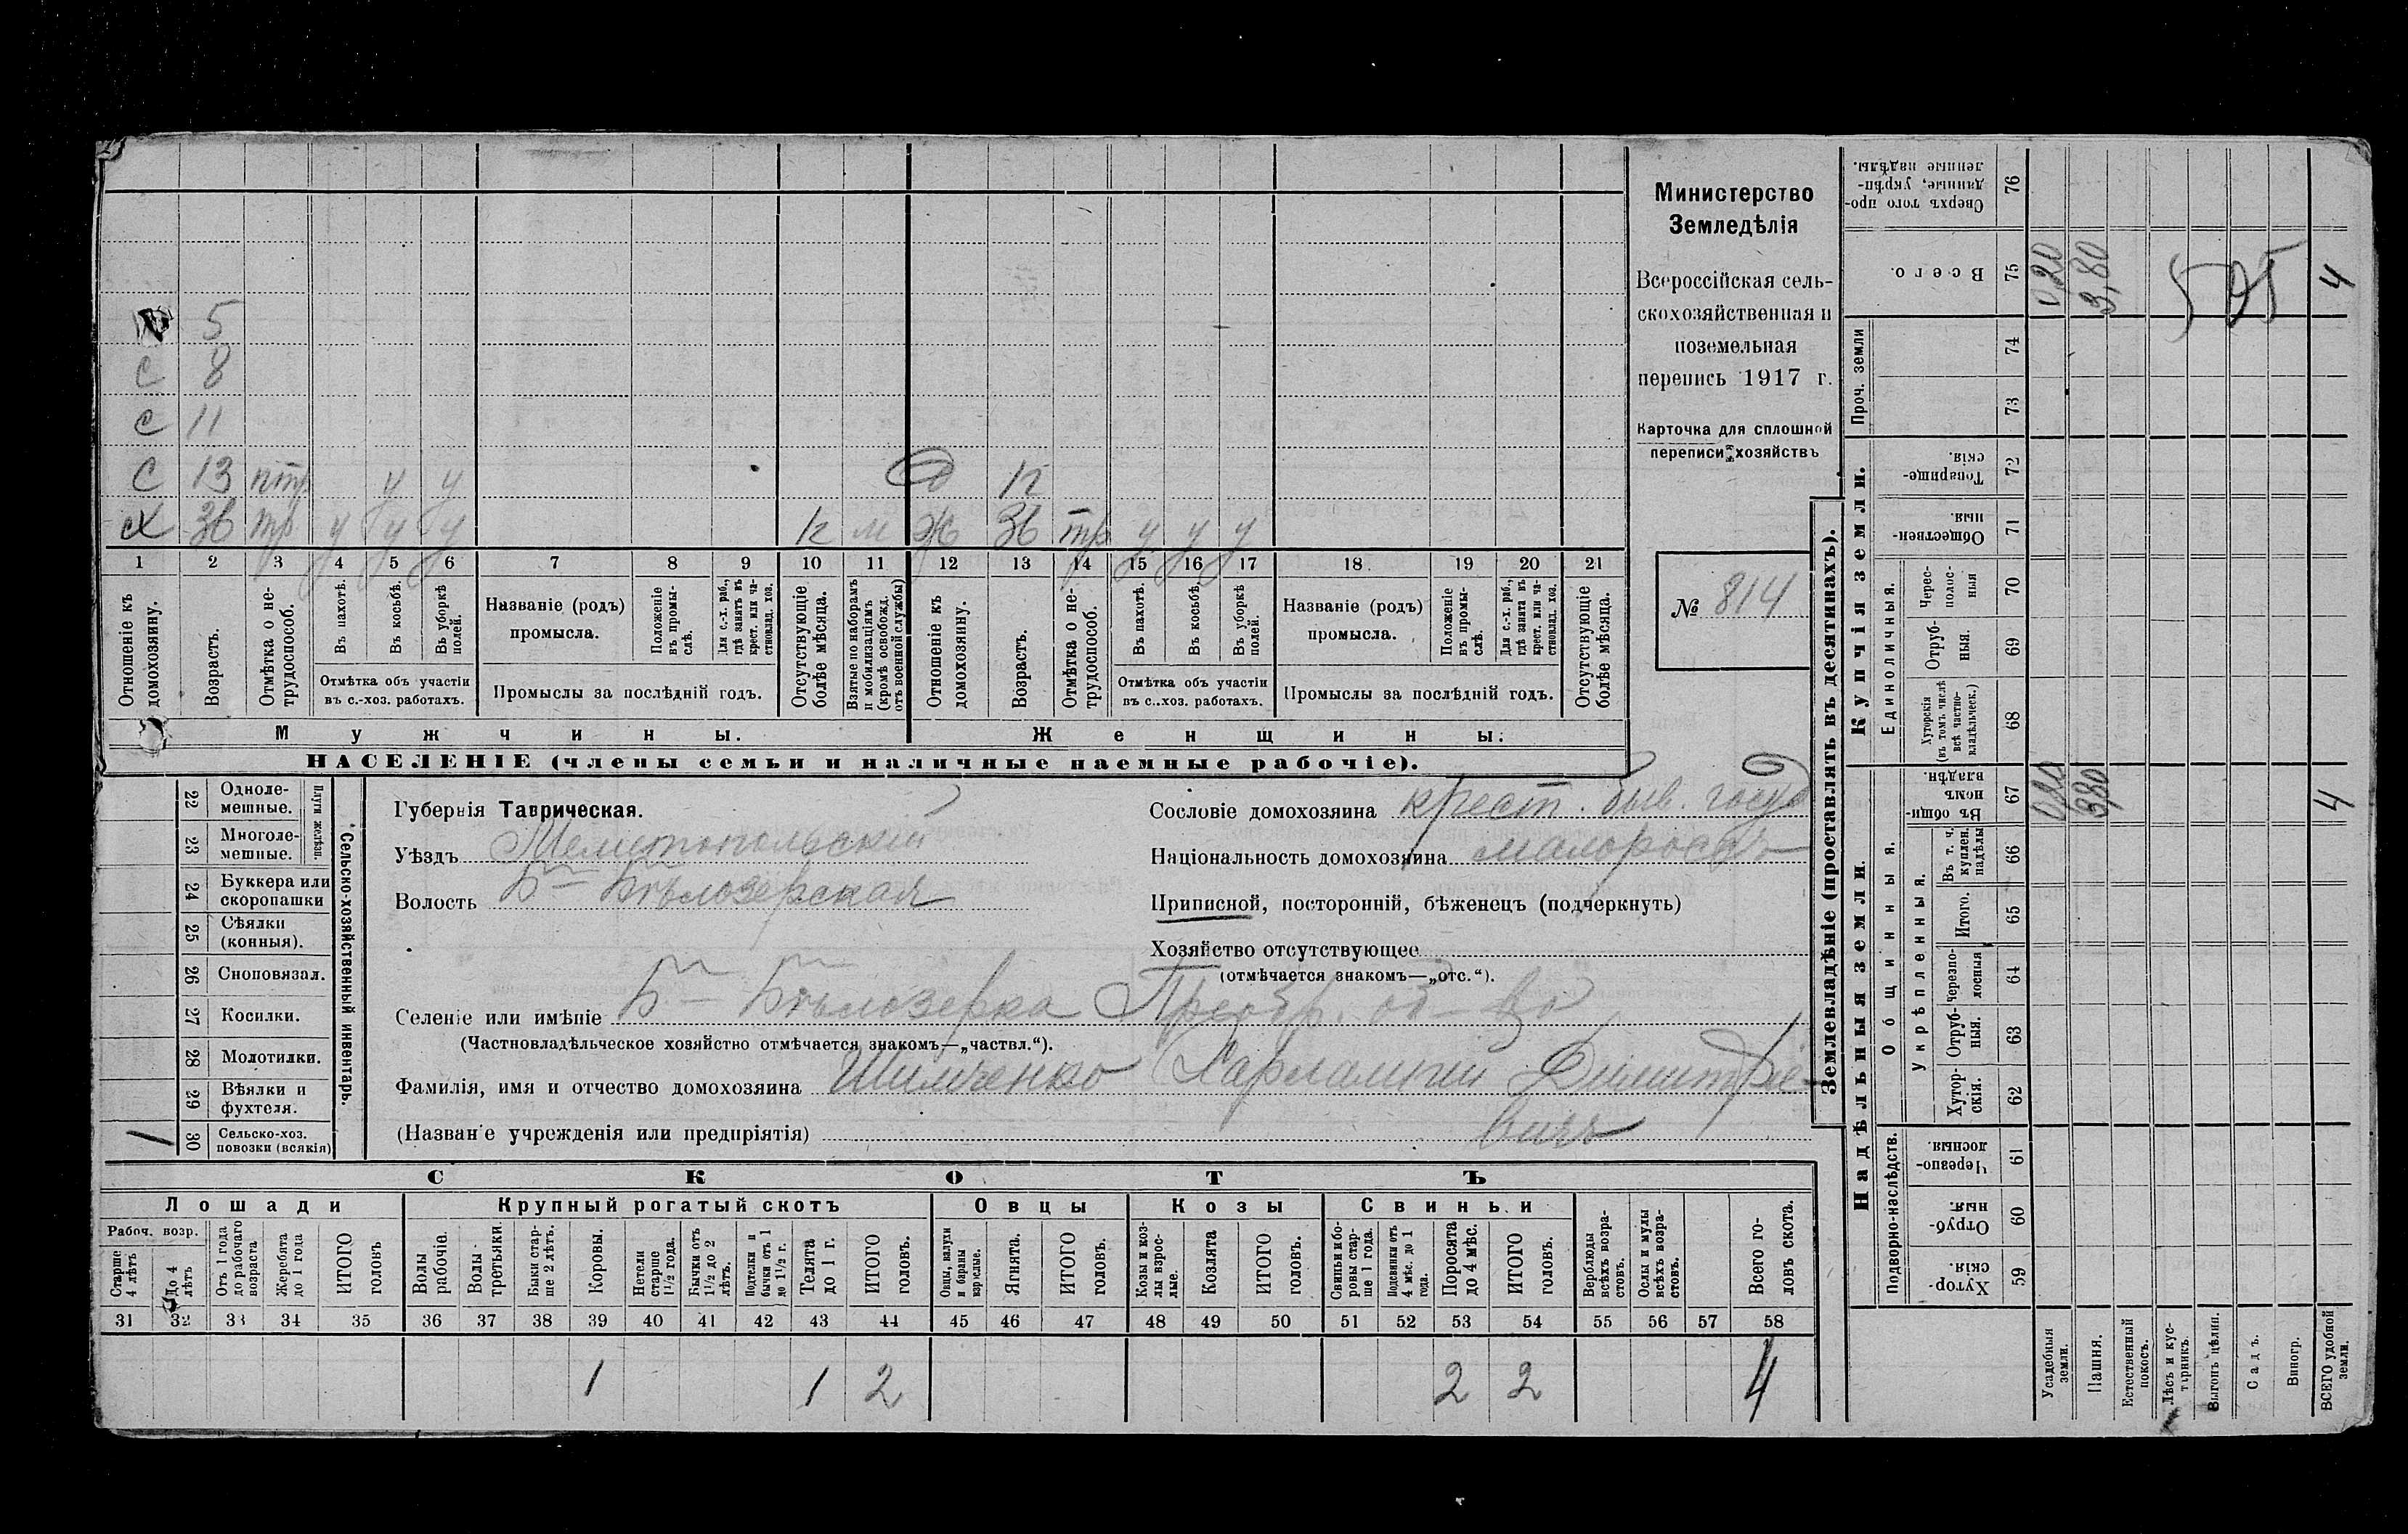 Министерство
Земледѣлія
Всероссійская сель-
скохозяйственная и
поземельная
перепись 1917 г.
Карточка для сплошной
переписи хозяйствъ
№ 814
5
с 8
с 11
с 13 птр у у
х 36 тр у у у м ж 36 тр у у у
1 2 3 4 5 6 7 8 9 10 11 12 13 14 15 16 17 18 19 20 21
Отношеніе къ домохозяину.
Возрастъ.
Отмѣтка о не-трудоспособ.
Въ пахотѣ.
Въ косьбѣ.
Въ уборкѣ полей.
Отмѣтка объ участіи въ с.-хоз. работахъ.
Названіе (родъ) промысла.
Положеніе въ промы-слѣ.
Для с.-х. раб., гдѣ занятъ въ крест. или ча-стновлад. хоз.
Промыслы за послѣдній годъ.
Отсутствующіе болѣе мѣсяца.
Взятые по наборамъ и мобилизаціямъ (кромѣ освобожд. отъ военной службы)
Отношеніе къ домохозяину.
Возрастъ.
Отмѣтка о не-трудоспособ.
Въ пахотѣ.
Въ косьбѣ.
Въ уборкѣ полей.
Отмѣтка объ участіи въ с..хоз. работахъ.
Названіе (родъ) промысла.
Положеніе въ промы-слѣ.
Для с.-х. раб., гдѣ занята въ крест. или ча-стновлад. хоз.
Промыслы за послѣдній годъ.
Отсутствующіе болѣе мѣсяца.
Мужчины.
Женщины.
НАСЕЛЕНІЕ (члены семьи и наличные наемные рабочіе).
22 Одноле-мешные.
23 Многоле-мешные.
Плуги желѣзн.
24 Буккера или скоропашки
25 Сѣялки (конныя).
26 Сноповязал.
27 Косилки.
28 Молотилки.
29 Вѣялки и фухтеля.
1 30 Сельско-хоз. повозки (всякія)
Сельско-хозяйственный инвентарь.
Губернія Таврическая.
Уѣздъ Мелитопольскій
Волость Б-Бѣлозерская
Сословіе домохозяина крест. быв. госуд
Національность домохозяина малоросъ
Приписной, посторонній, бѣженецъ (подчеркнуть)
Хозяйство отсутствующее
(отмѣчается знакомъ—„отс.“).
Селеніе или имѣніе Б-Бѣлозерка Преобр. об-во
(Частновладѣльческое хозяйство отмѣчается знакомъ—„частвл.“).
Фамилія, имя и отчество домохозяина Шимченко Харлампий Димитріе-
вичъ
(Названіе учрежденія или предпріятія)
СКОТЪ
Лошади
Крупный рогатый скотъ
Овцы
Козы
Свиньи
Рабоч. возр.
Старше 4 лѣтъ
До 4 лѣтъ
Отъ 1 года до рабочаго возраста
Жеребята до 1 года
ИТОГО головъ
Волы рабочіе.
Волы-третьяки.
Быки стар-ше 2 лѣтъ.
Коровы.
Нетели старше 1½ года.
Бычки отъ 1½ до 2 лѣтъ.
Подтелки и бычки отъ 1 до 1½ г.
Телята до 1 г.
ИТОГО головъ.
Овцы, валухи и бараны взрослые.
Ягнята.
ИТОГО головъ.
Козы и коз-лы взрос-лые.
Козлята
ИТОГО головъ.
Свиньи и бо-ровы стар-ше 1 года.
Подсвинки отъ 4 мѣс. до 1 года.
Поросята до 4 мѣс.
ИТОГО головъ.
Верблюды всѣхъ возра-стовъ.
Ослы и мулы всѣхъ возра-стовъ.
Всего го-ловъ скота.
31 32 33 34 35 36 37 38 39 40 41 42 43 44 45 46 47 48 49 50 51 52 53 54 55 56 57 58
1 1 2 2 2 4
Землевладѣніе (проставлять въ десятинахъ).
Надѣльныя земли.
Купчія земли.
Проч. земли
Общинныя.
Укрѣпленныя.
Единоличныя.
Подворно-наслѣдств.
Сверхъ того про-данные, укрѣп-ленные надѣлы. 76
Всего. 75 0,20 3,80 4
74
73
Товарище-скія. 72
Обществен-ныя. 71
Черес-полос-ныя 70
Отруб-ныя. 69
Хуторскія (въ томъ числѣ всѣ частно-владѣльческ.) 68
Въ общи-номъ владѣн. 67 0,20 3,80 4
Въ т. ч. куплен. надѣлы 66
Итого. 65
Черезпо-лосныя 64
Отруб-ныя. 63
Хутор-скія. 62
Черезпо-лосныя 61
Отруб-ныя. 60
Хутор-скія. 59
Усадебныя земли.
Пашня.
Естественный покосъ.
Лѣсъ и кус-тарникъ.
Выгонъ цѣлин.
Садъ.
Виногр.
ВСЕГО удобной земли.